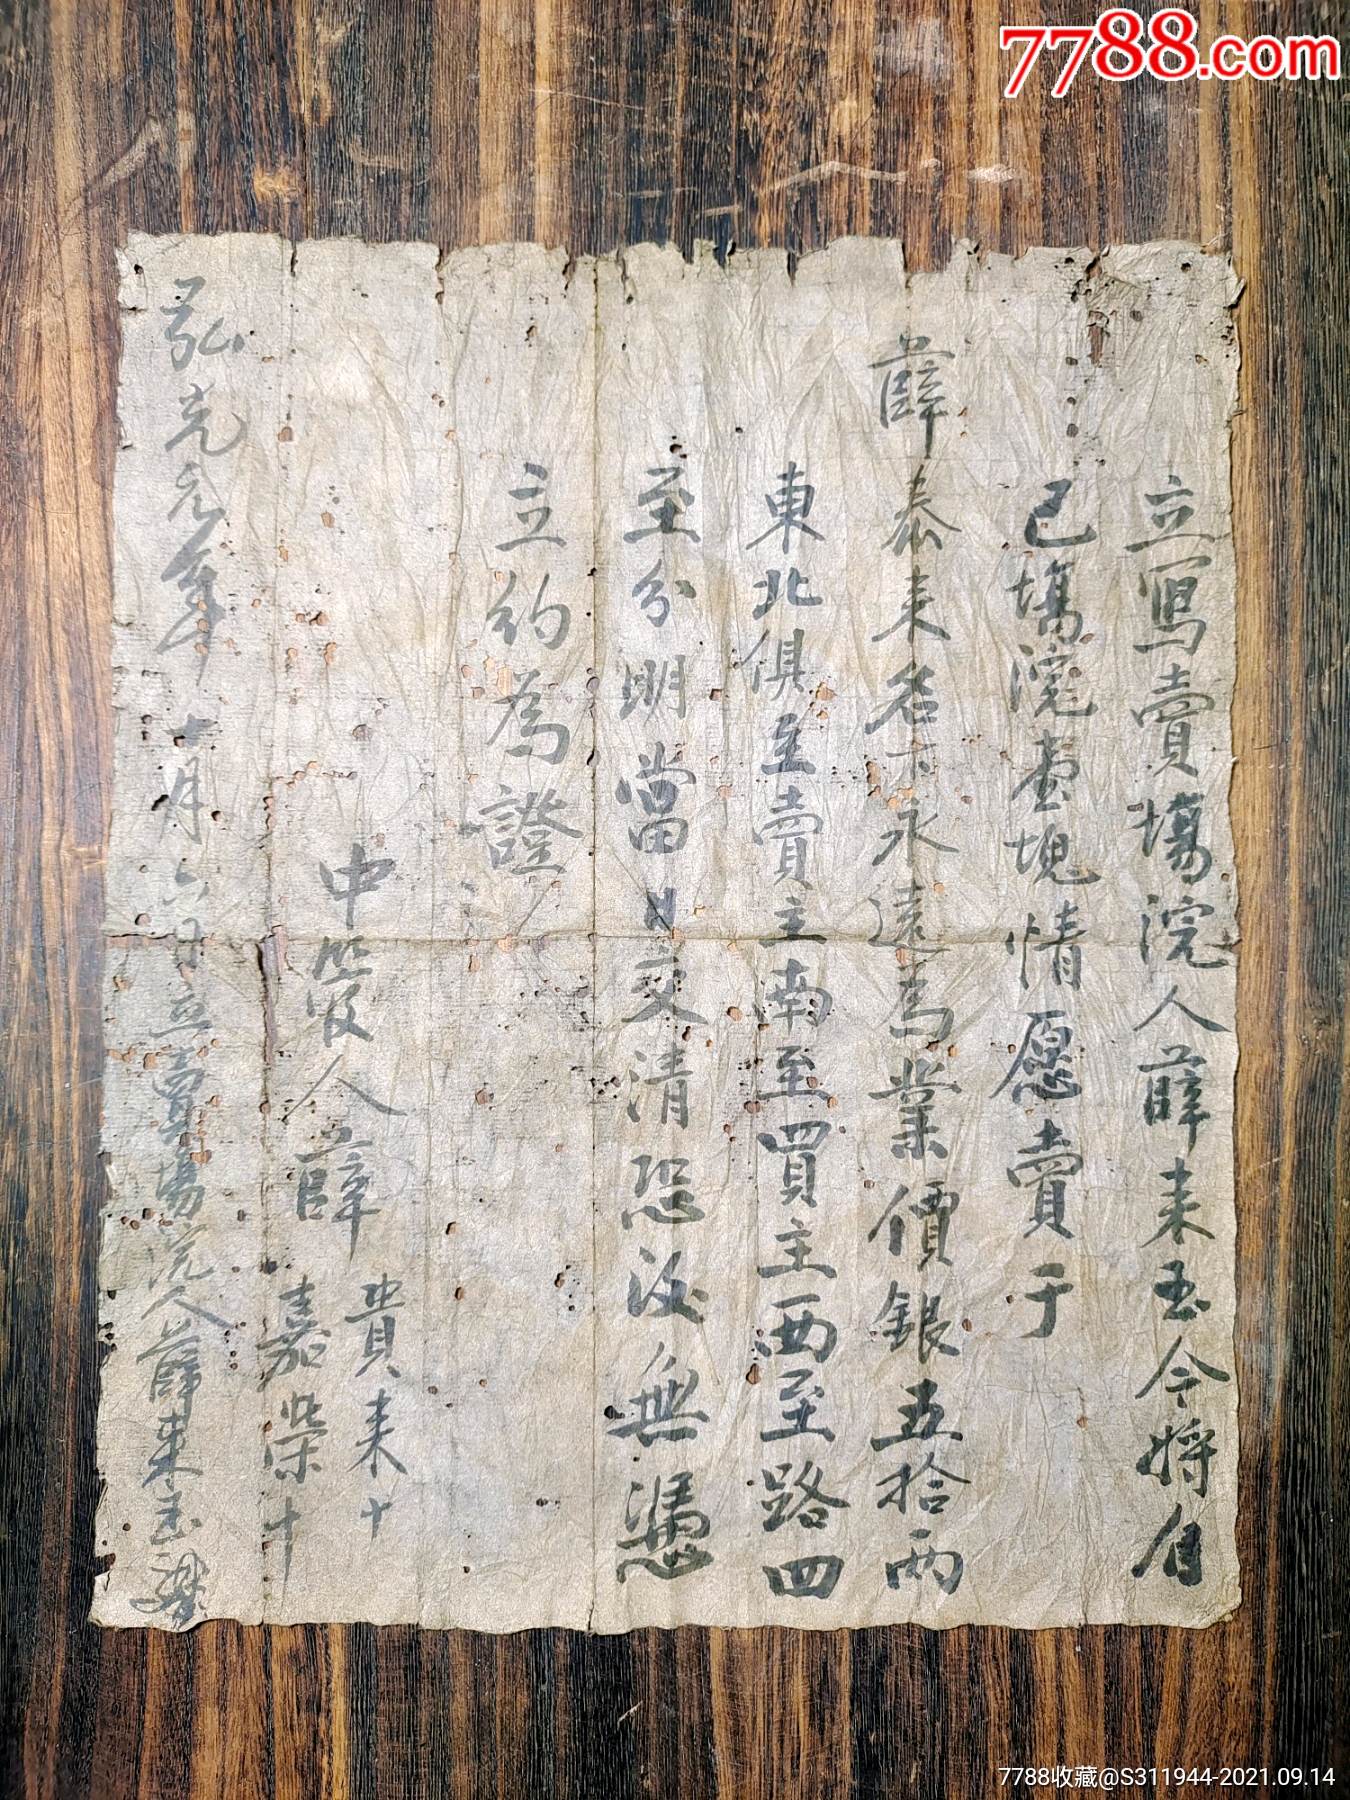 7788.com
立寫賣塲浣人薛来玉今將自
己塲浣壹塊情愿賣于
薛泰来名下永遠為業價銀五拾两
東北俱至賣主南至買主西至路四
至分明當日交清恐後無憑
立約為證
中管人薛
貴来十
嘉荣十
弘光元年十月六日立賣塲浣人薛来玉
7788收藏@S311944-2021.09.14